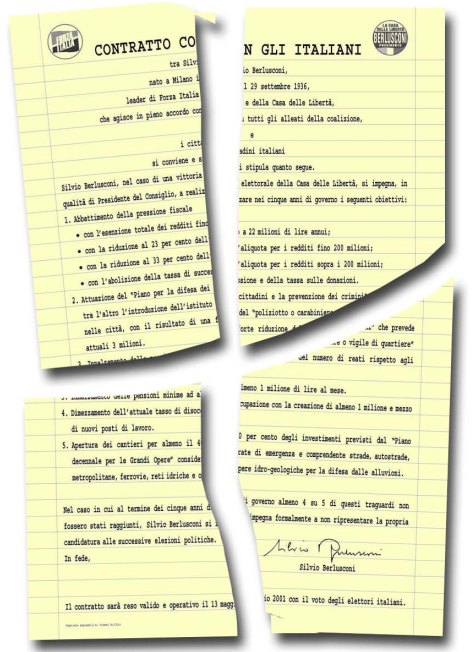 FORZA ITALIA
LA CASA DELLE LIBERTÀ
BERLUSCONI
PRESIDENTE
CONTRATTO CON GLI ITALIANI
tra Silvio Berlusconi,
nato a Milano il 29 settembre 1936,
leader di Forza Italia e della Casa delle Libertà,
che agisce in pieno accordo con tutti gli alleati della coalizione,
e
i cittadini italiani
si conviene e si stipula quanto segue.
Silvio Berlusconi, nel caso di una vittoria elettorale della Casa delle Libertà, si impegna, in
qualità di Presidente del Consiglio, a realizzare nei cinque anni di governo i seguenti obiettivi:
1. Abbattimento della pressione fiscale
• con l'esenzione totale dei redditi fino a 22 milioni di lire annui;
• con la riduzione al 23 per cento dell'aliquota per i redditi fino 200 milioni;
• con la riduzione al 33 per cento dell'aliquota per i redditi sopra i 200 milioni;
• con l'abolizione della tassa di successione e della tassa sulle donazioni.
2. Attuazione del "Piano per la difesa dei cittadini e la prevenzione dei crimini
tra l'altro l'introduzione dell'istituto del "poliziotto o carabiniere o vigile di quartiere"
nelle città, con il risultato di una forte riduzione del numero di reati rispetto agli
" che prevede
attuali 3 milioni.
3. Innalzamento delle pensioni minime ad almeno 1 milione di lire al mese.
4. Dimezzamento dell'attuale tasso di disoccupazione con la creazione di almeno 1 milione e mezzo
di nuovi posti di lavoro.
5. Apertura dei cantieri per almeno il 40 per cento degli investimenti previsti dal "Piano
decennale per le Grandi Opere" considerate di emergenza e comprendente strade, autostrade,
metropolitane, ferrovie, reti idriche e opere idro-geologiche per la difesa dalle alluvioni.
Nel caso in cui al termine dei cinque anni di governo almeno 4 su 5 di questi traguardi non
fossero stati raggiunti, Silvio Berlusconi si impegna formalmente a non ripresentare la propria
candidatura alle successive elezioni politiche.
In fede,
Silvio Berlusconi
Silvio Berlusconi
Il contratto sarà reso valido e operativo il 13 maggio 2001 con il voto degli elettori italiani.